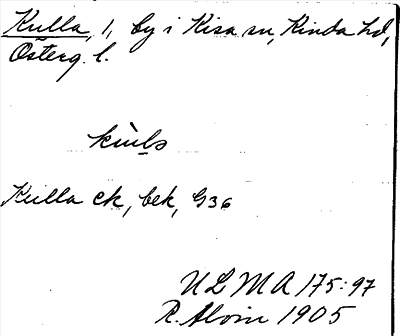 Kulla, 1, by i Kisa sn, Kinda hd,
Österg. l.
Kulla ek, bek, G36
ULMA 175:97
R. Alvin 1905